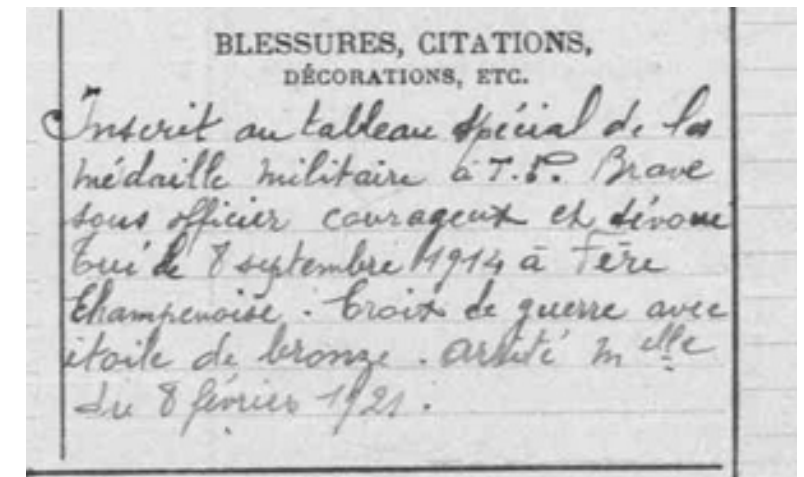 BLESSURES, CITATIONS,
DÉCORATIONS, ETC.
Inscrit au tableau spécial de la
médaille militaire à T.P. Brave
sous officier courageux et dévoué
tué le 8 septembre 1914 à Fère
Champenoise. Croix de guerre avec
étoile de bronze. arrêté m elle
du 8 février 1921.